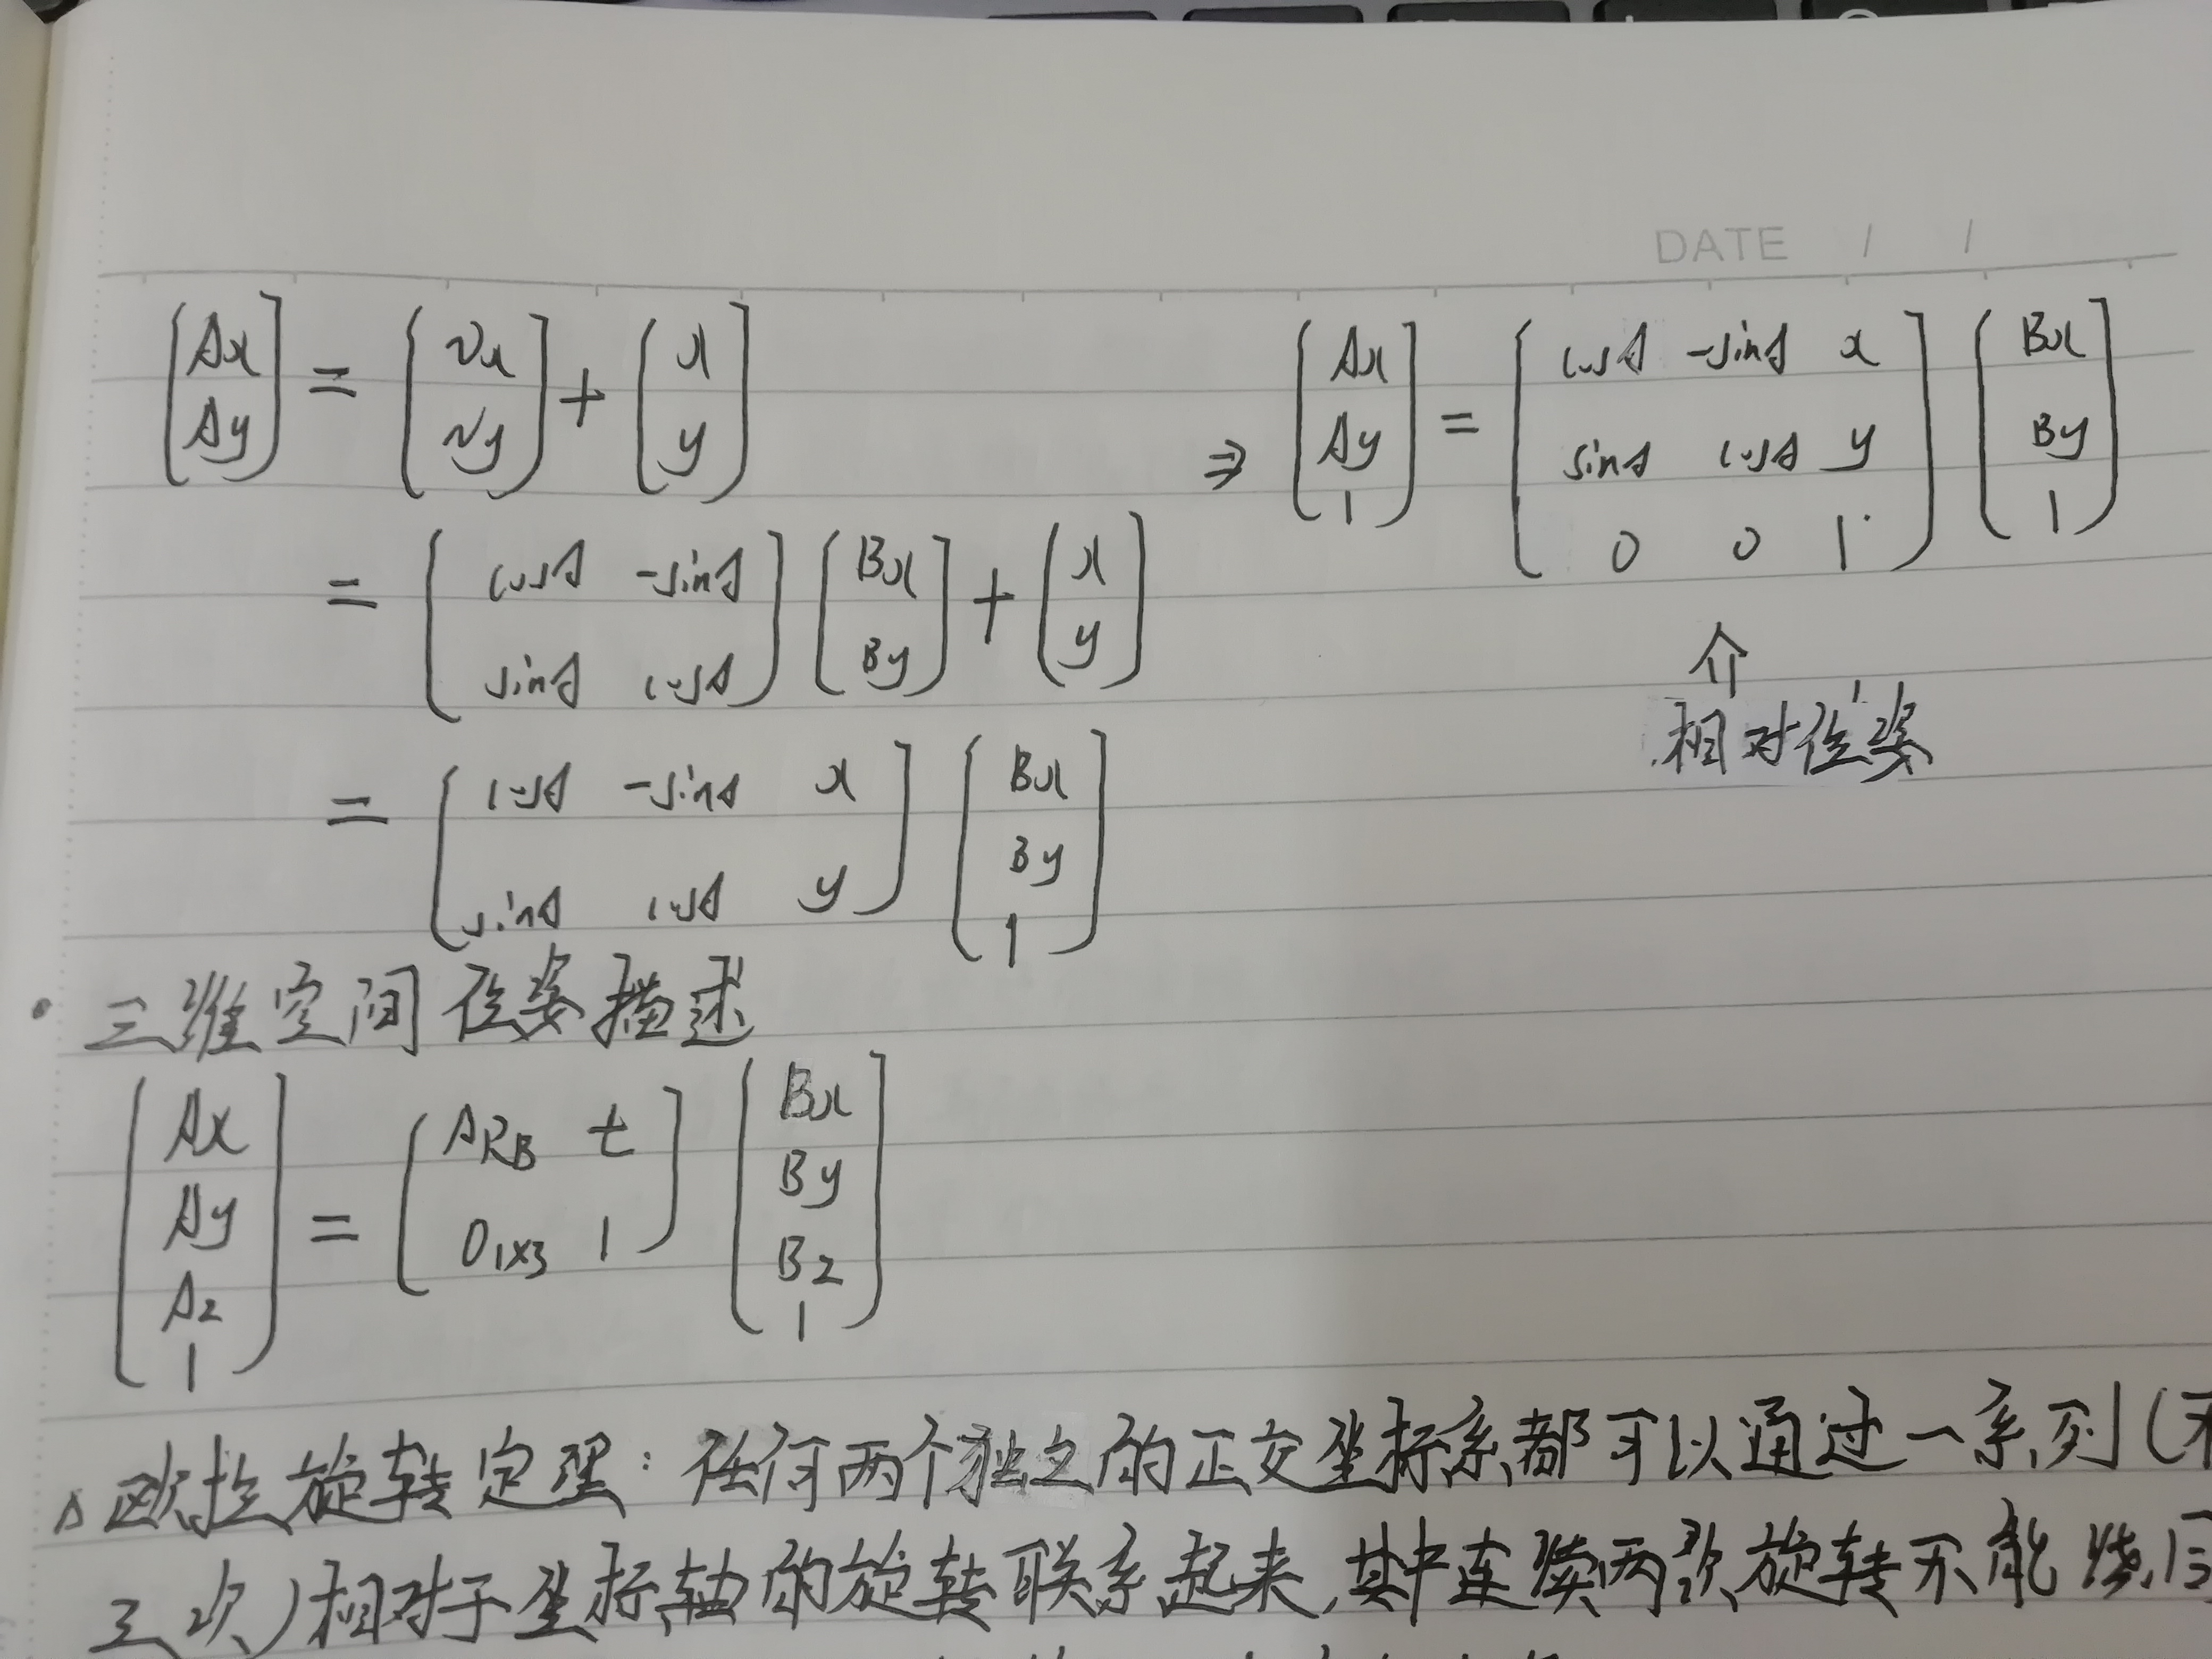 DATE / /
[Ax Ay] = [Vx Vy] + [x y]
= [cosθ -sinθ; sinθ cosθ] [Bx By] + [x y]
= [cosθ -sinθ x; sinθ cosθ y] [Bx By 1]
⇒ [Ax Ay 1] = [cosθ -sinθ x; sinθ cosθ y; 0 0 1] [Bx By 1]
⇑
相对位姿
• 三维空间位姿描述
[Ax Ay Az 1] = [ARB t; 01×3 1] [Bx By Bz 1]
△欧拉旋转定理：任何两个独立的正交坐标系都可以通过一系列(不
三次)相对于坐标轴的旋转联系起来,其中连续两次旋转不能绕同